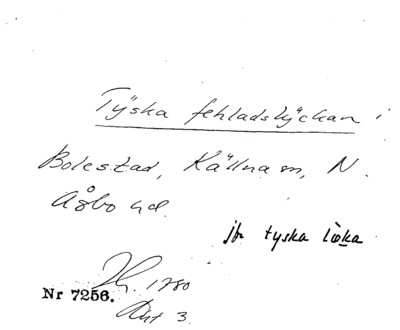 Tÿska fehladslÿckan i
Bolestad, Källna sn, N.
Åsbo hd.
jfr tyska
1780
Nr 7256.
Akt 3